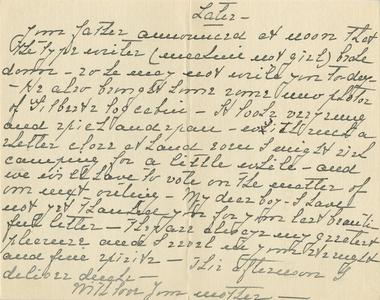 Later -
Your father announced at noon that
the type writer (machine not girl) broke
down - so he may not write you today
- He also brought home some new photos
of Gilberts log cabin - It looks very snug
and spick and span - with such a
shelter close at hand even I might risk
camping for a little while - and
we will have to vote on the matter of
our next outing - My dear boy - I have
not yet thanked you for your last beauti-
ful letter - They are always my greatest
pleasure and I revel in your strength
and fine spirit - This afternoon I
deliver
With love Your mother -